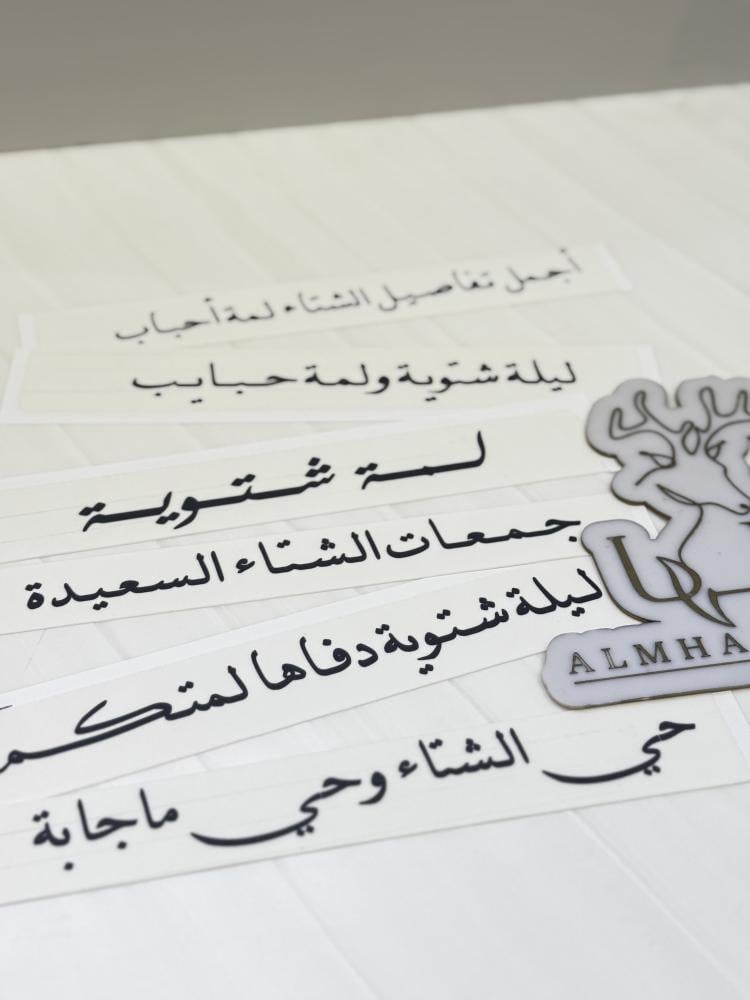 أجمل تفاصيل الشتاء لمة أحباب
ليلة شتوية ولمة حبايب
لمة شتوية
جمعات الشتاء السعيدة
ليلة شتوية دفاها لمتكم
حي الشتاء وحي ماجابة
ALMHA